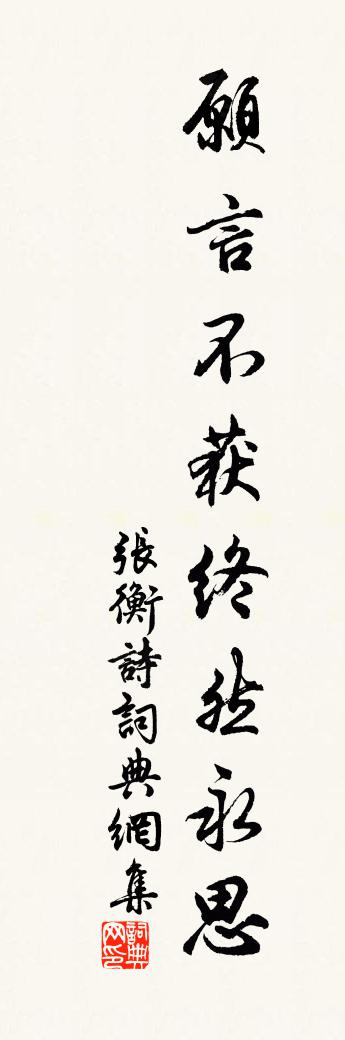 願言不获終然永思
張衡詩詞典網集
詞典网印